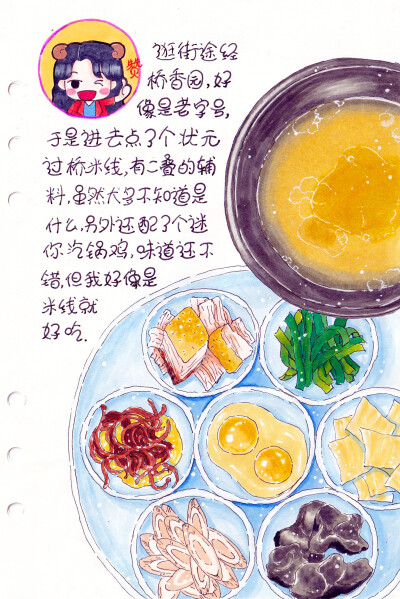 赞
逛街途经
桥香园,好
像是老字号,
于是进去点了个状元
过桥米线,有二叠的辅
料,虽然大多不知道是
什么,另外还配了个迷
你汽锅鸡,味道还不
错,但我好像是
米线就
好吃.